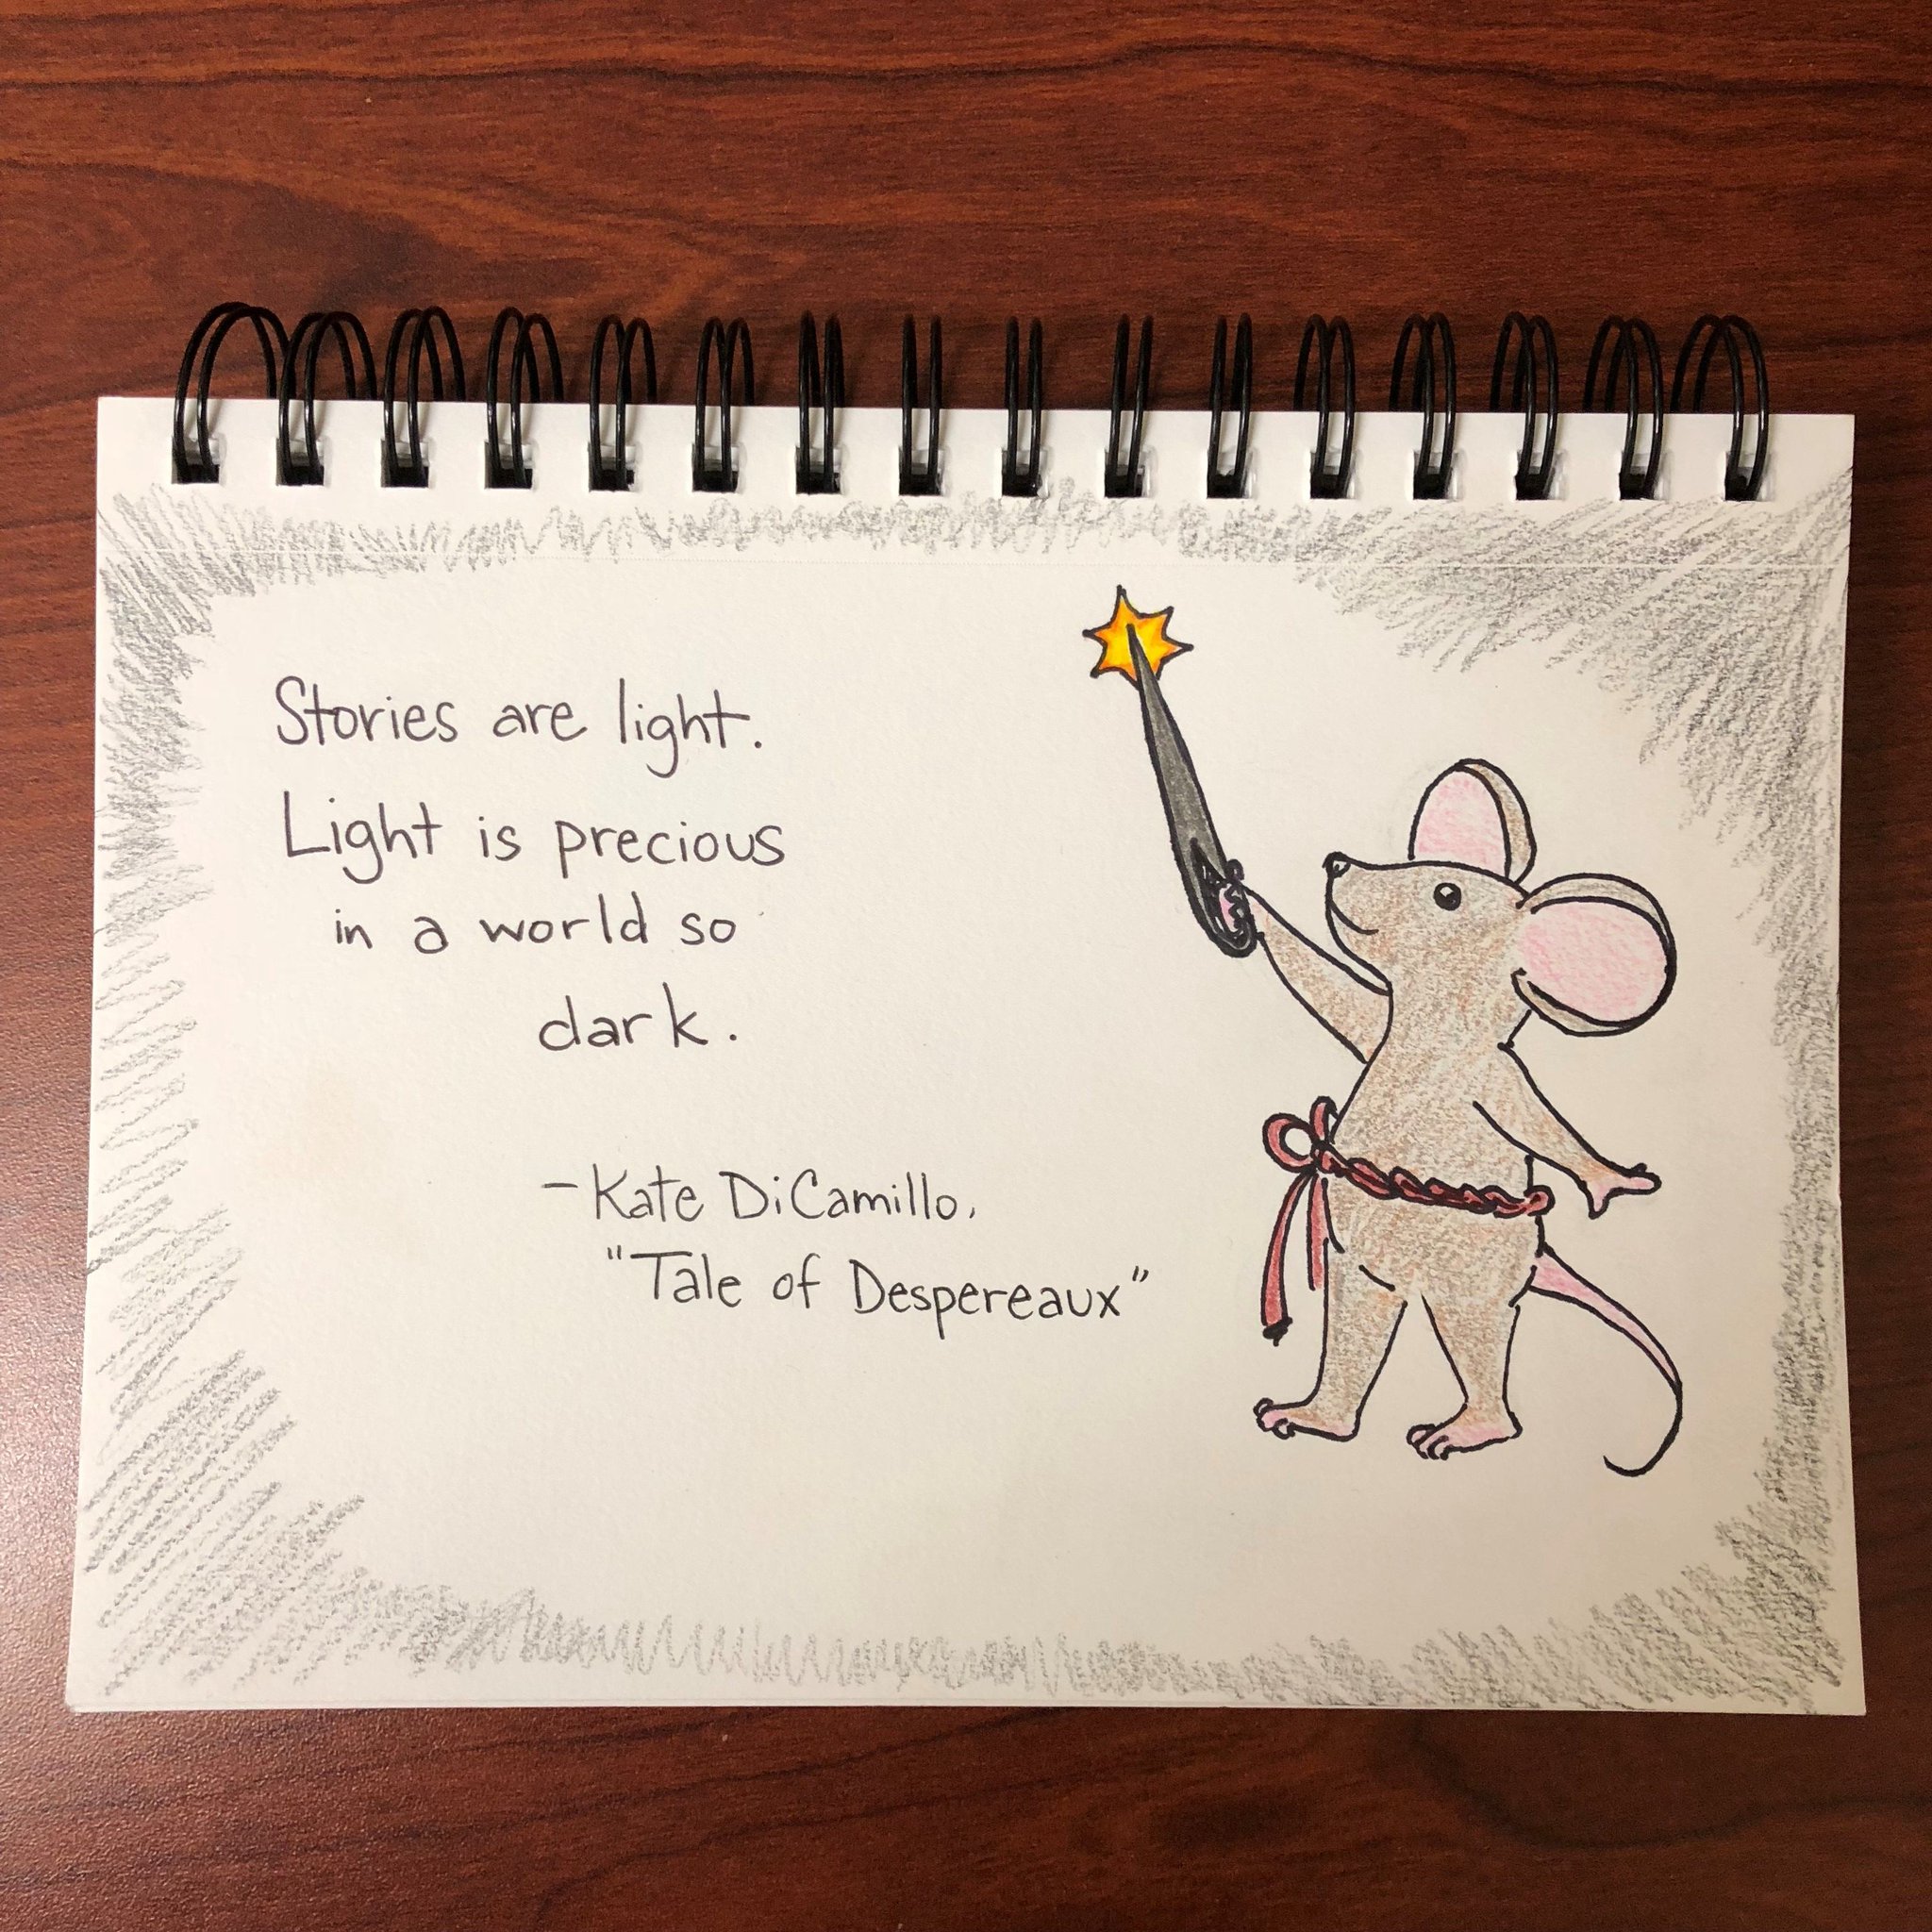 Stories are light.
Light is precious
in a world so
dark.
- Kate DiCamillo,
"Tale of Despereaux"